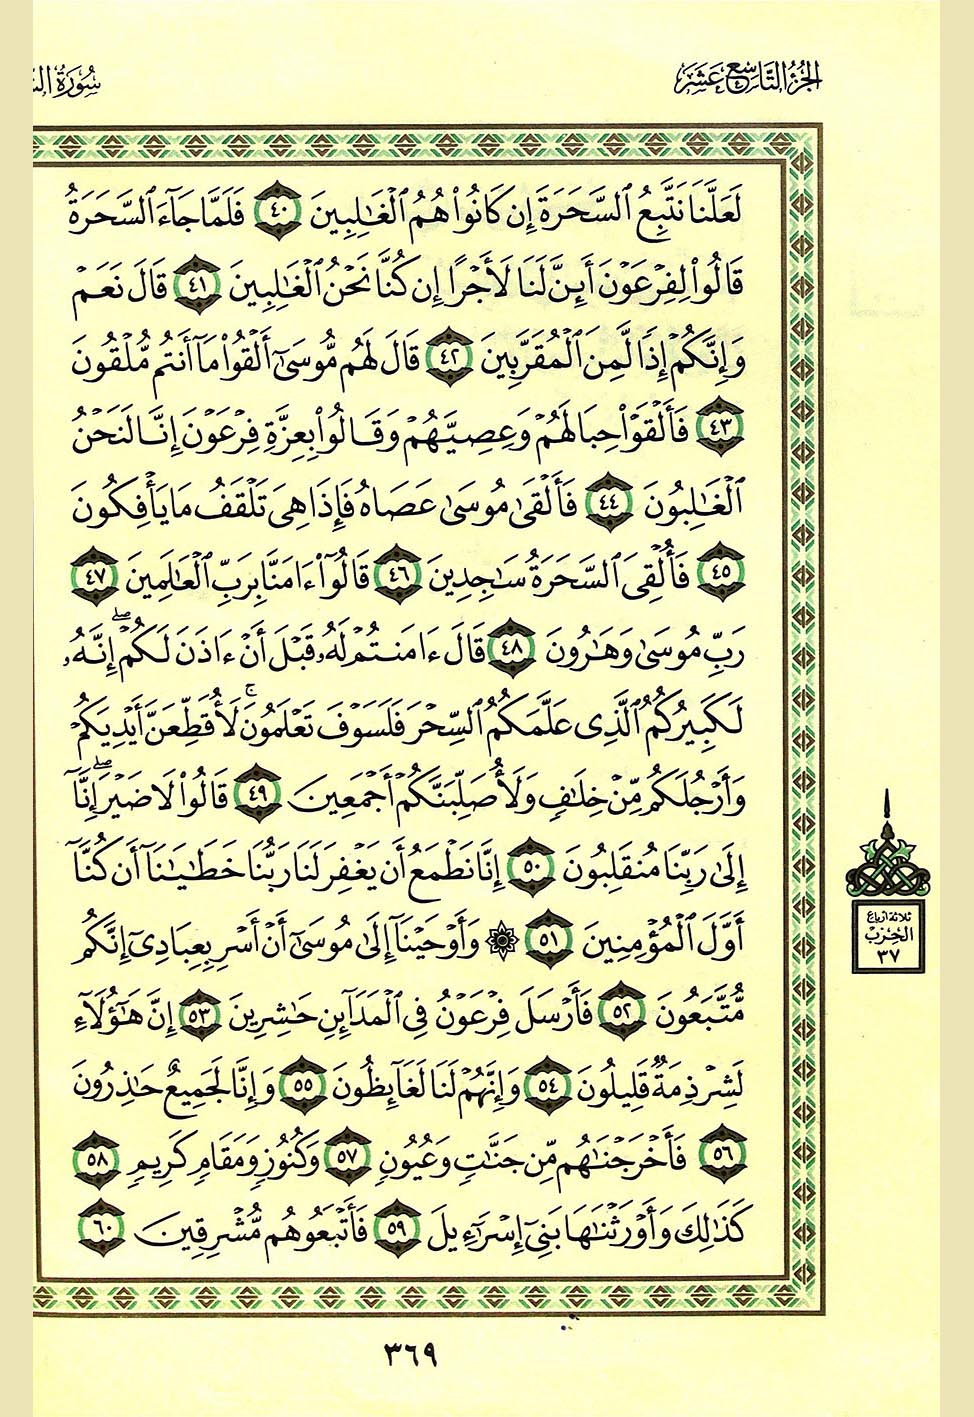 الجزء التاسع عشر
سورة
لَعَلَّنَا نَتَّبِعُ ٱلسَّحَرَةَ إِن كَانُواْ هُمُ ٱلْغَٰلِبِينَ ٤٠ فَلَمَّا جَآءَ ٱلسَّحَرَةُ
قَالُواْ لِفِرْعَوْنَ أَئِنَّ لَنَا لَأَجْرًا إِن كُنَّا نَحْنُ ٱلْغَٰلِبِينَ ٤١ قَالَ نَعَمْ
وَإِنَّكُمْ إِذًا لَّمِنَ ٱلْمُقَرَّبِينَ ٤٢ قَالَ لَهُم مُّوسَىٰٓ أَلْقُواْ مَآ أَنتُم مُّلْقُونَ
٤٣ فَأَلْقَوْاْ حِبَالَهُمْ وَعِصِيَّهُمْ وَقَالُواْ بِعِزَّةِ فِرْعَوْنَ إِنَّا لَنَحْنُ
ٱلْغَٰلِبُونَ ٤٤ فَأَلْقَىٰ مُوسَىٰ عَصَاهُ فَإِذَا هِىَ تَلْقَفُ مَا يَأْفِكُونَ
٤٥ فَأُلْقِىَ ٱلسَّحَرَةُ سَٰجِدِينَ ٤٦ قَالُوٓاْ ءَامَنَّا بِرَبِّ ٱلْعَٰلَمِينَ ٤٧
رَبِّ مُوسَىٰ وَهَٰرُونَ ٤٨ قَالَ ءَامَنتُمْ لَهُۥ قَبْلَ أَنْ ءَاذَنَ لَكُمْۖ إِنَّهُۥ
لَكَبِيرُكُمُ ٱلَّذِى عَلَّمَكُمُ ٱلسِّحْرَ فَلَسَوْفَ تَعْلَمُونَۚ لَأُقَطِّعَنَّ أَيْدِيَكُمْ
وَأَرْجُلَكُم مِّنْ خِلَٰفٍ وَلَأُصَلِّبَنَّكُمْ أَجْمَعِينَ ٤٩ قَالُواْ لَا ضَيْرَۖ إِنَّآ
إِلَىٰ رَبِّنَا مُنقَلِبُونَ ٥٠ إِنَّا نَطْمَعُ أَن يَغْفِرَ لَنَا رَبُّنَا خَطَٰيَٰنَآ أَن كُنَّآ
أَوَّلَ ٱلْمُؤْمِنِينَ ٥١ ۞ وَأَوْحَيْنَآ إِلَىٰ مُوسَىٰٓ أَنْ أَسْرِ بِعِبَادِىٓ إِنَّكُم
مُّتَّبَعُونَ ٥٢ فَأَرْسَلَ فِرْعَوْنُ فِى ٱلْمَدَآئِنِ حَٰشِرِينَ ٥٣ إِنَّ هَٰٓؤُلَآءِ
لَشِرْذِمَةٌ قَلِيلُونَ ٥٤ وَإِنَّهُمْ لَنَا لَغَآئِظُونَ ٥٥ وَإِنَّا لَجَمِيعٌ حَٰذِرُونَ
٥٦ فَأَخْرَجْنَٰهُم مِّن جَنَّٰتٍ وَعُيُونٍ ٥٧ وَكُنُوزٍ وَمَقَامٍ كَرِيمٍ ٥٨
كَذَٰلِكَ وَأَوْرَثْنَٰهَا بَنِىٓ إِسْرَٰٓءِيلَ ٥٩ فَأَتْبَعُوهُم مُّشْرِقِينَ ٦٠
ثلاثة أرباع
الحزب
٣٧
٣٦٩